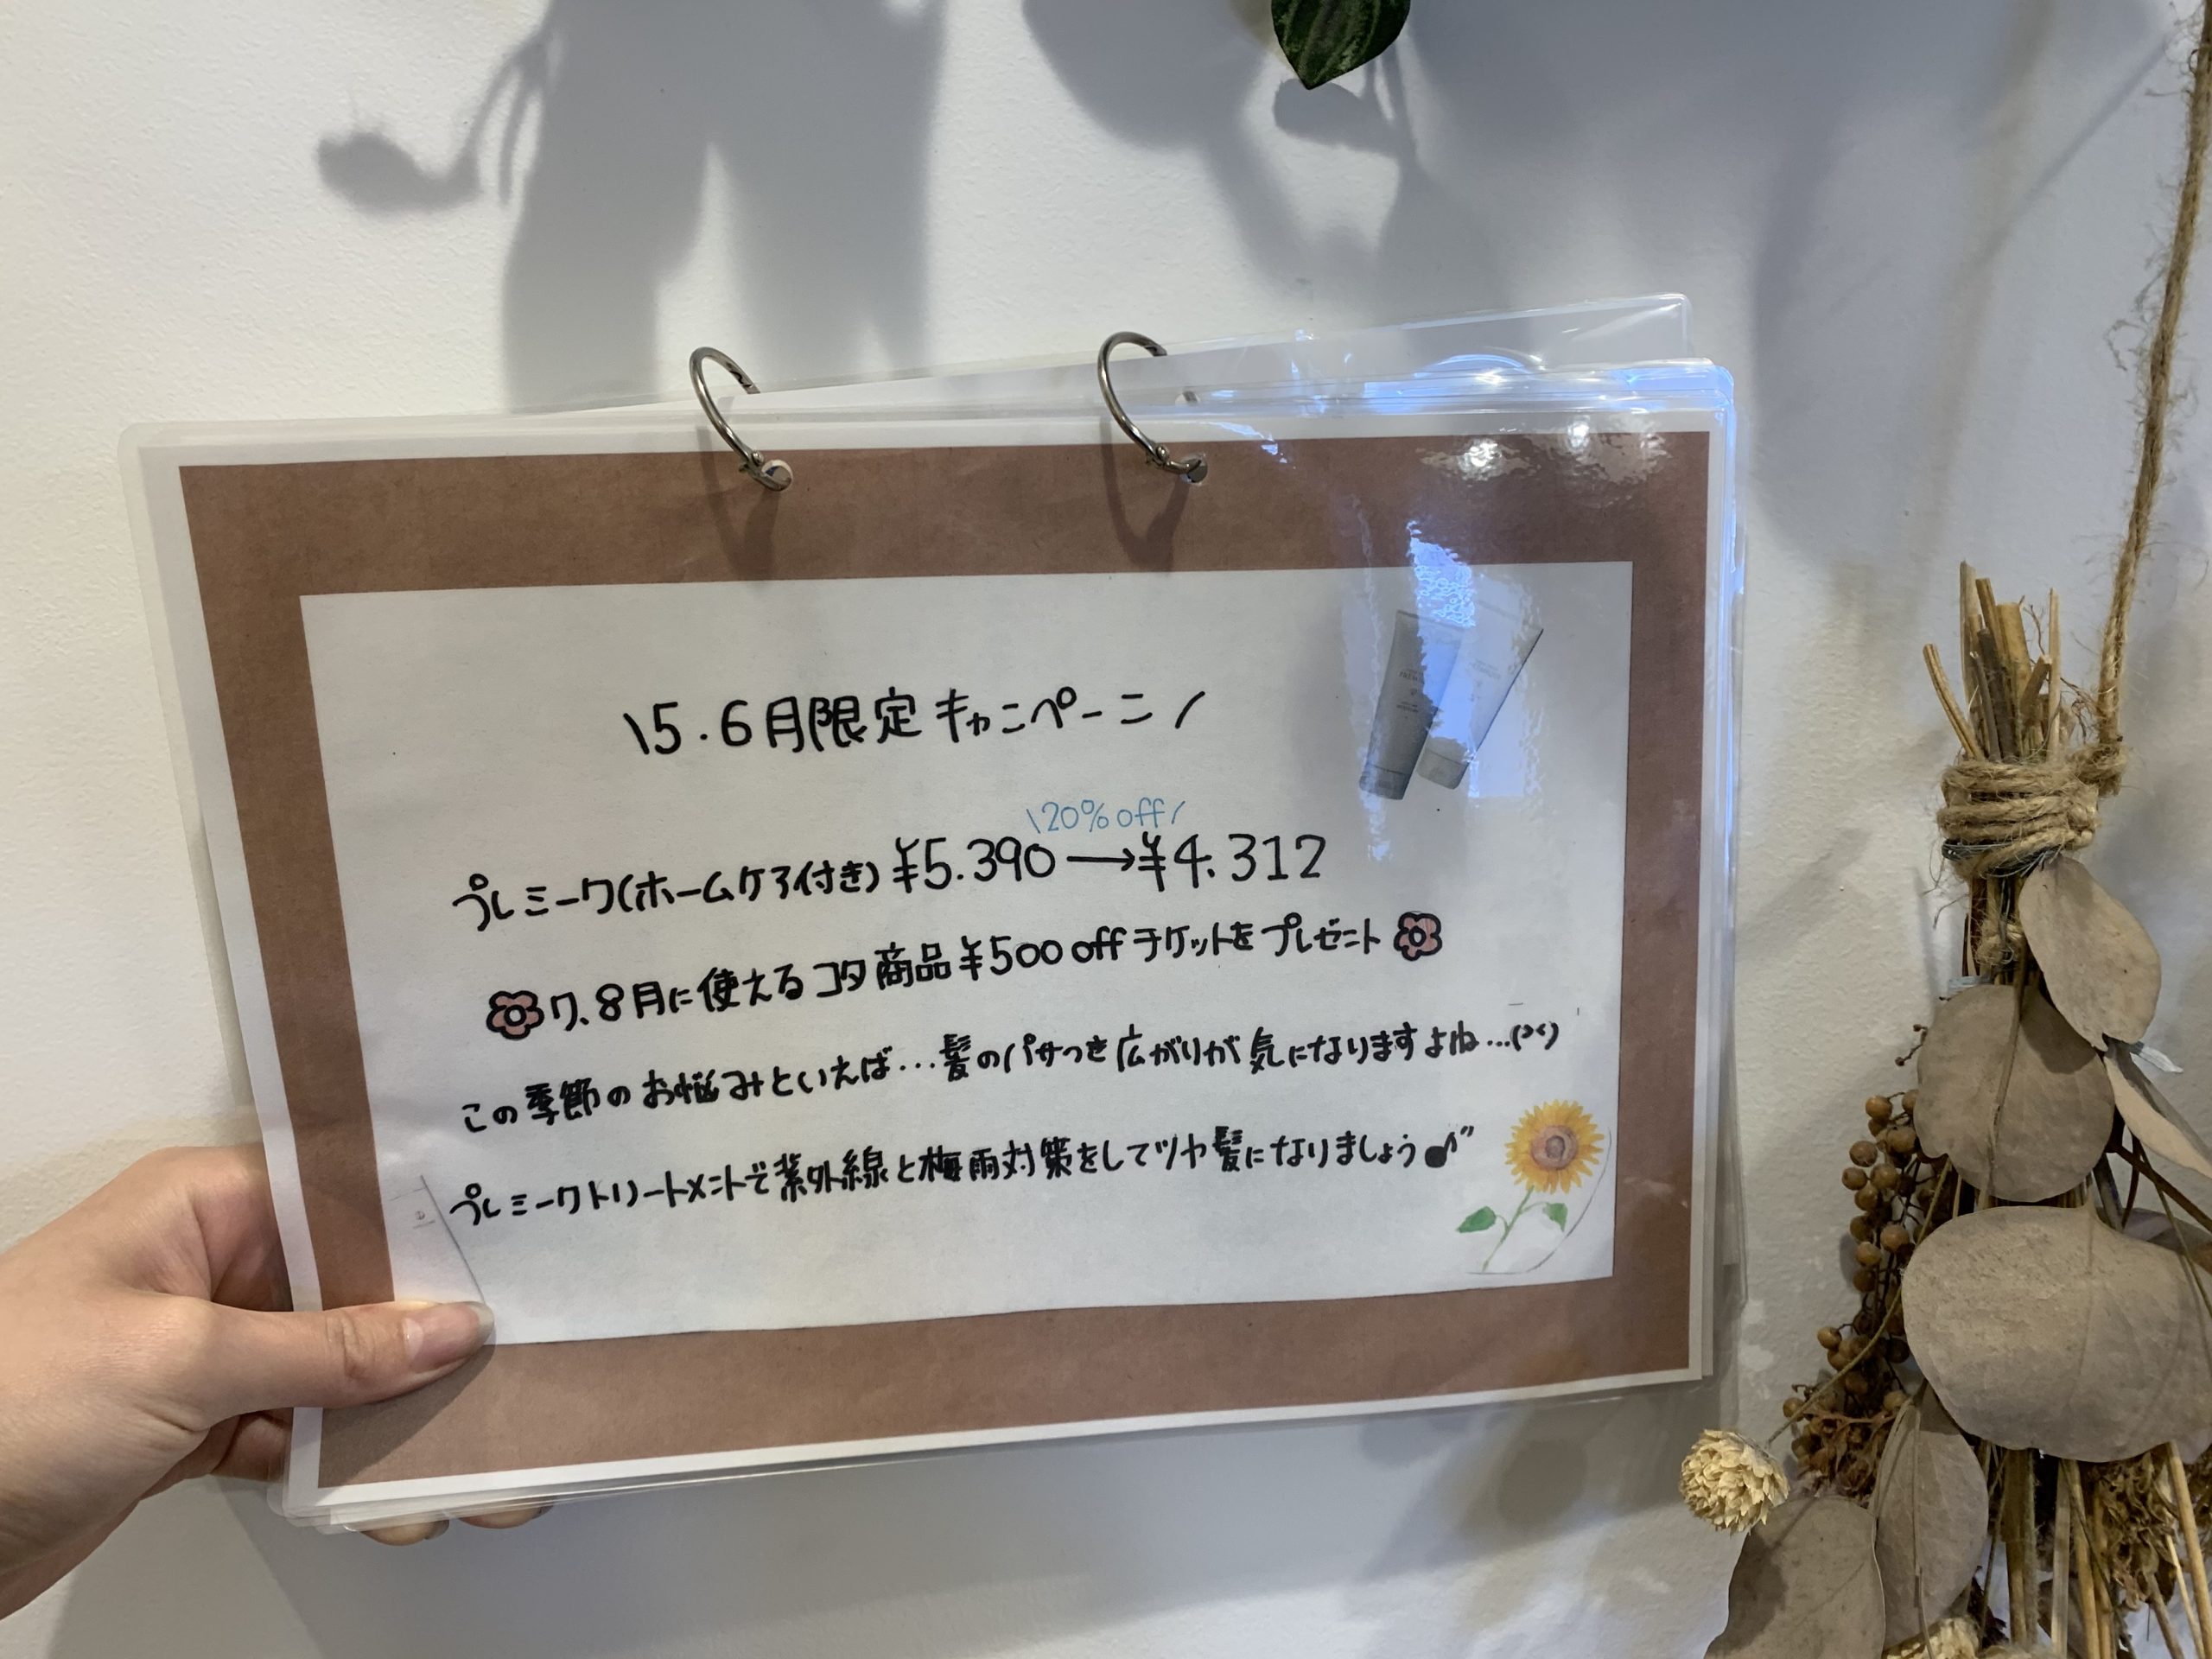 \5.6月限定キャンペーン/
\20%off/
プレミーク(ホームケア付き)¥5.390→¥4.312
7、8月に使えるコタ商品¥500offチケットをプレゼント
この季節のお悩みといえば…髪のパサつき広がりが気になりますよね…(><)
プレミークトリートメントで紫外線と梅雨対策をしてツヤ髪になりましょう♪"